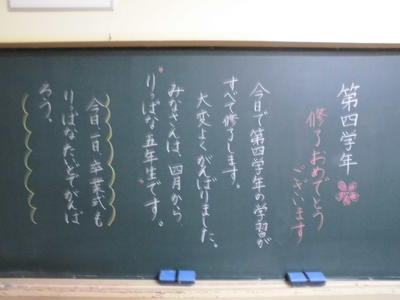 第四学年
修了おめでとう
ございます
今日で第四学年の学習が
すべて修了します。
大変よくがんばりました。
みなさんは、四月から
りっぱな五年生です。
今日一日卒業式も
りっぱなたいどでがんば
ろう。